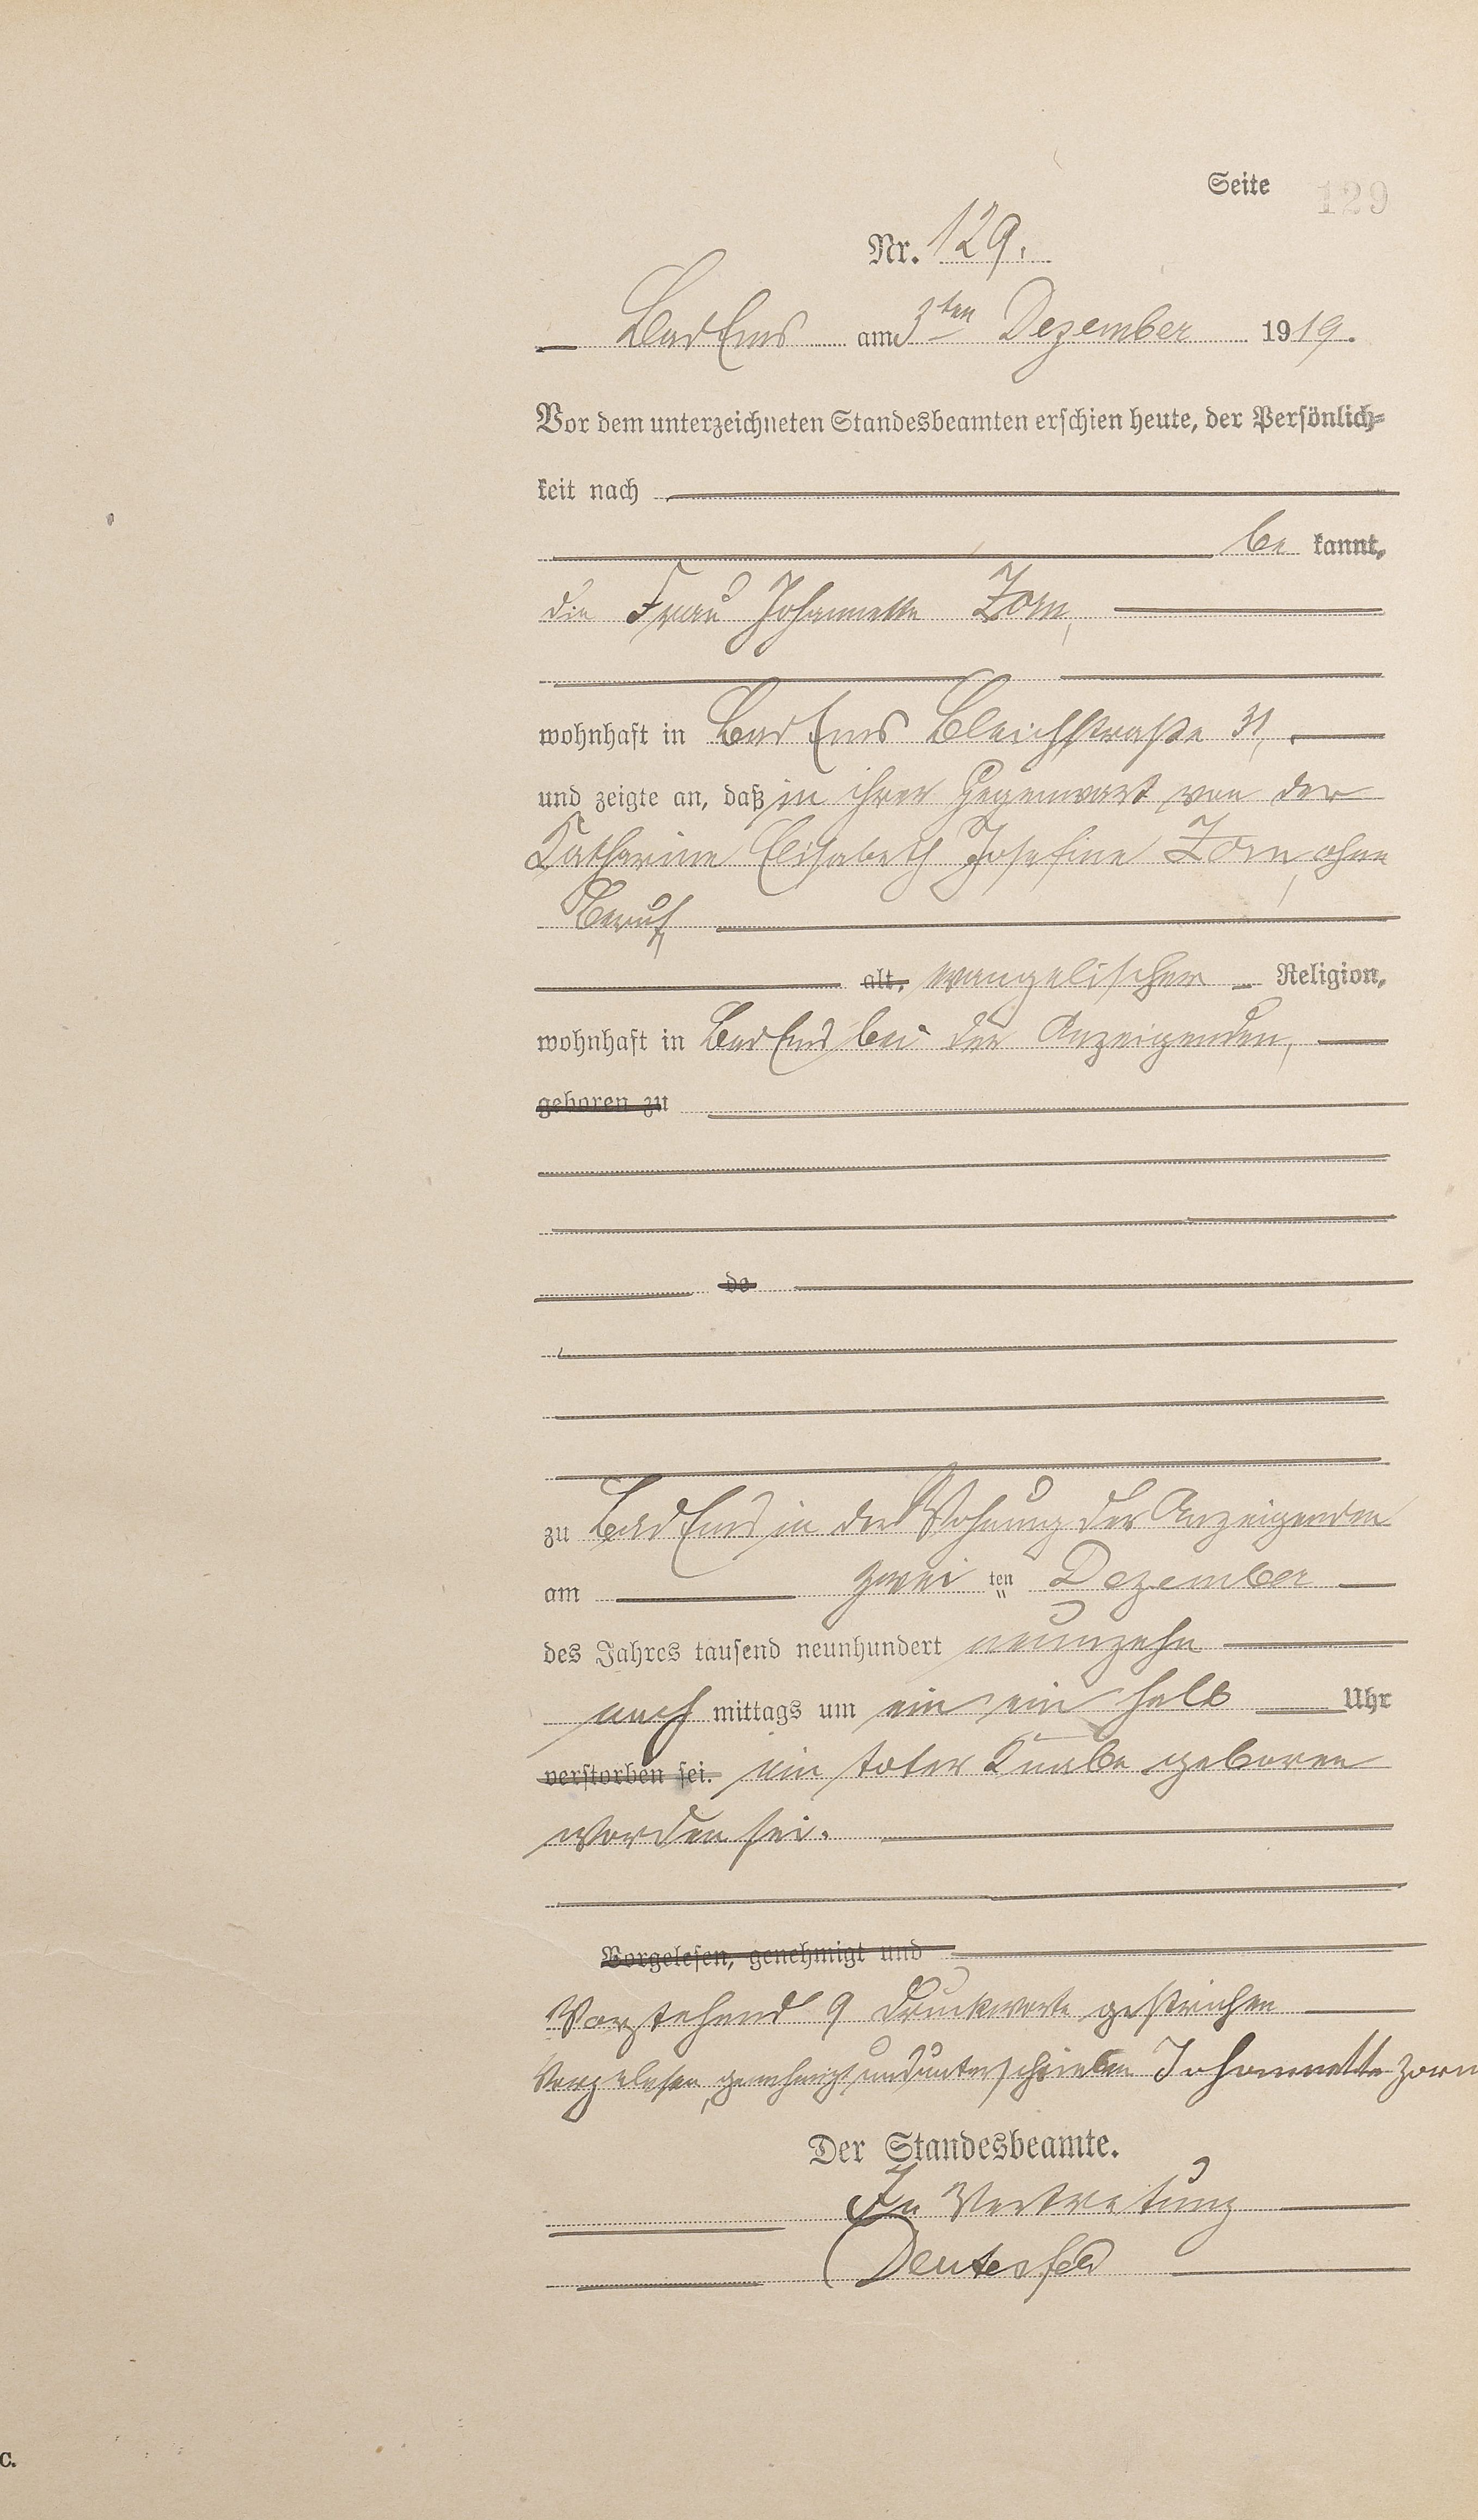 Seite 129
Nr. 129.
Bad Ems am 3ten Dezember 1919.
Vor dem unterzeichneten Standesbeamten erschien heute, der Persönlich-
keit nach
be kannt,
die Frau Johannette Zorn,
wohnhaft in Bad Ems Bleichstraße 31,
und zeigte an, daß in ihrer Gegenwart von der
Katharine Elisabeth Josefine Zorn, ohne
Beruf,
alt, evangelischer Religion,
wohnhaft in Bad Ems bei der Anzeigenden,
geboren zu
de
zu Bad Ems in der Wohnung der Anzeigenden
am zwei ten Dezember
des Jahres tausend neunhundert neunzehn
nach mittags um ein ein halb Uhr
verstorben sei. ein toter Knabe geboren
worden sei.
Vorgelesen, genehmigt und
Vorstehend 9 Druckworte gestrichen
Vorgelesen, genehmigt und unterschrieben Johannette Zorn
Der Standesbeamte.
In Vertretung
C.